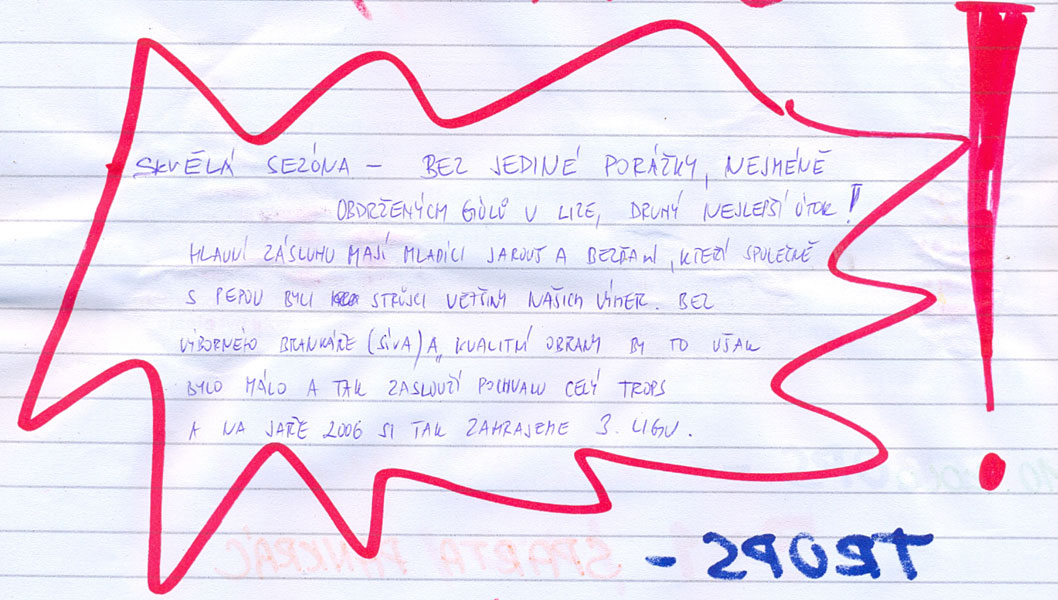 SKVĚLÁ SEZÓNA – BEZ JEDINÉ PORÁŽKY, NEJMÉNĚ
OBDRŽENÝCH GÓLŮ V LIZE, DRUHÝ NEJLEPŠÍ ÚTOK!
HLAVNÍ ZÁSLUHU MAJÍ MLADÍCI JAROUŠ A, KTEŘÍ SPOLEČNĚ
S PEPOU BYLI STRŮJCI VĚTŠINY NAŠICH VÝHER. BEZ
VÝBORNÉHO BRANKÁŘE (SÍVA) A KVALITNÍ OBRANY BY TO VŠAK
BYLO MÁLO A TAK ZASLOUŽÍ POCHVALU CELÝ TROPS
A NA JAŘE 2006 SI TAK ZAHRAJEME 3. LIGU.
TROPS -
SPARTA PANKRÁC